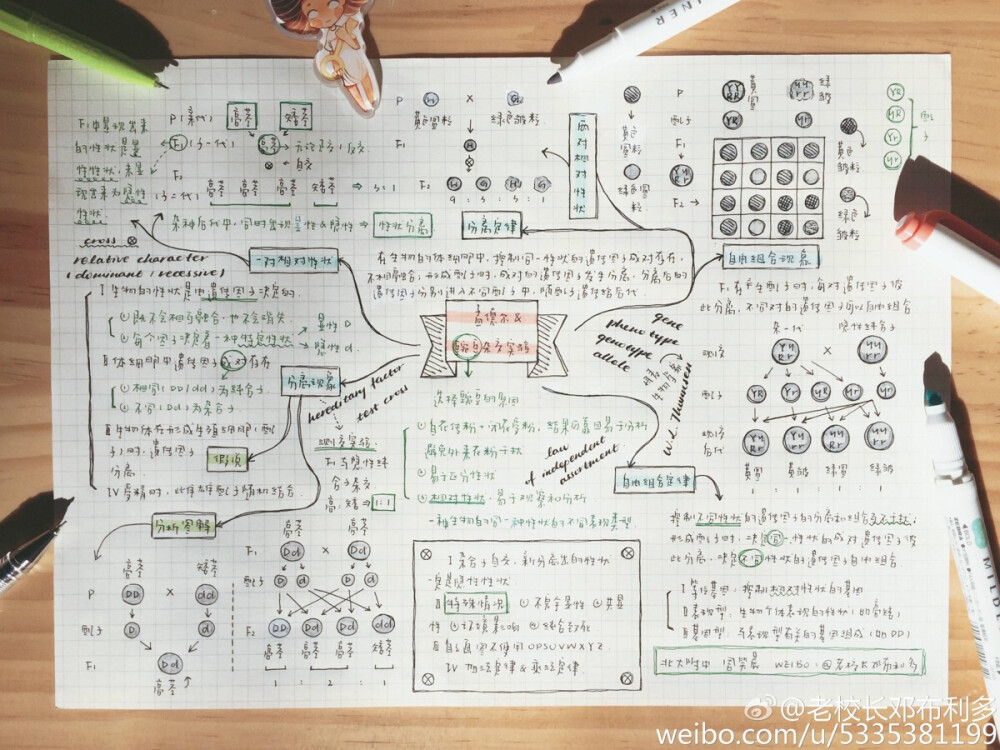 F₁中显现出来
的性状是显
性性状,未显
现出来为隐性
性状
P(亲代) 高茎 矮茎
F₁(子一代) 高茎 无论正交/反交
⊗自交
F₂(子二代) 高茎 高茎 高茎 矮茎 ⇒ 3:1
杂种后代中,同时出现显性&隐性 ⇒ 性状分离
cross ⊗
relative character
(dominant / recessive)
一对相对性状
P × 
黄色圆粒 绿色皱粒
F₁
F₂
9 : 3 : 3 : 1
两对相对性状
分离定律
在生物的体细胞中,控制同一性状的遗传因子成对存在,
不相融合;形成配子时,成对的遗传因子发生分离,分离后的
遗传因子分别进入不同配子中,随配子遗传给后代.
P YYRR 黄圆 yyrr 绿皱
配子 YR yr
F₁ YyRr
F₂
黄色圆粒
绿色圆粒
黄色皱粒
绿色皱粒
YR
yR
Yr
yr
配子
自由组合现象
F₁在产生配子时,每对遗传因子彼
此分离,不同对的遗传因子可以自由组合
杂一代 隐性纯合子
测交 YyRr × yyrr
配子 YR Yr yR yr yr
测交后代 YyRr Yyrr yyRr yyrr
黄圆 黄皱 绿圆 绿皱
1 : 1 : 1 : 1
孟德尔&
豌豆杂交实验
gene
phenotype
genotype
allele
I 生物的性状是由遗传因子决定的.
①既不会相互融合,也不会消失
②每个因子决定着一种特定性状 显性D
隐性d.
II 体细胞中遗传因子成对存在
①相同(DD/dd)为纯合子
②不同(Dd)为杂合子
III 生物体在形成生殖细胞(配
子)时,遗传因子
分离.
IV 受精时,此雌雄配子随机结合
假说
分离现象
hereditary factor
test cross
测交实验
F₁与隐性纯
合子杂交
高:矮 ⇒ 1:1
选择豌豆的原因
①自花传粉、闭花受粉,结果可靠且易于分析
避免外来花粉干扰
②易于区分性状
③相对性状,易于观察和分析
一种生物的同一种性状的不同表现类型
law
of independent
assortment
自由组合定律
控制不同性状的遗传因子的分离和组合互不干扰;
形成配子时,决定同一性状的成对遗传因子彼
此分离,决定不同性状的遗传因子自由组合
I 等位基因:控制相对性状的基因
II 表现型:生物个体表现的性状(如高矮)
III 基因型:与表现型有关的基因组成(如DD)
分析图解
高茎 矮茎
P DD dd
配子 D d
F₁ Dd
高茎
高茎 高茎
F₁ Dd × Dd
配子 D d D d
F₂ DD Dd Dd dd
高茎 高茎 高茎 矮茎
1 : 2 : 1
I 杂合子自交,新分离出的性状
一定是隐性性状
II 特殊情况 ①不完全显性 ②共显
性 ③环境影响 ④纯合致死
III 自己命名不使用OPSUVWXYZ
IV 加法定律&乘法定律.
WEIBO:@老校长邓布利多
@老校长邓布利多
weibo.com/u/5335381199